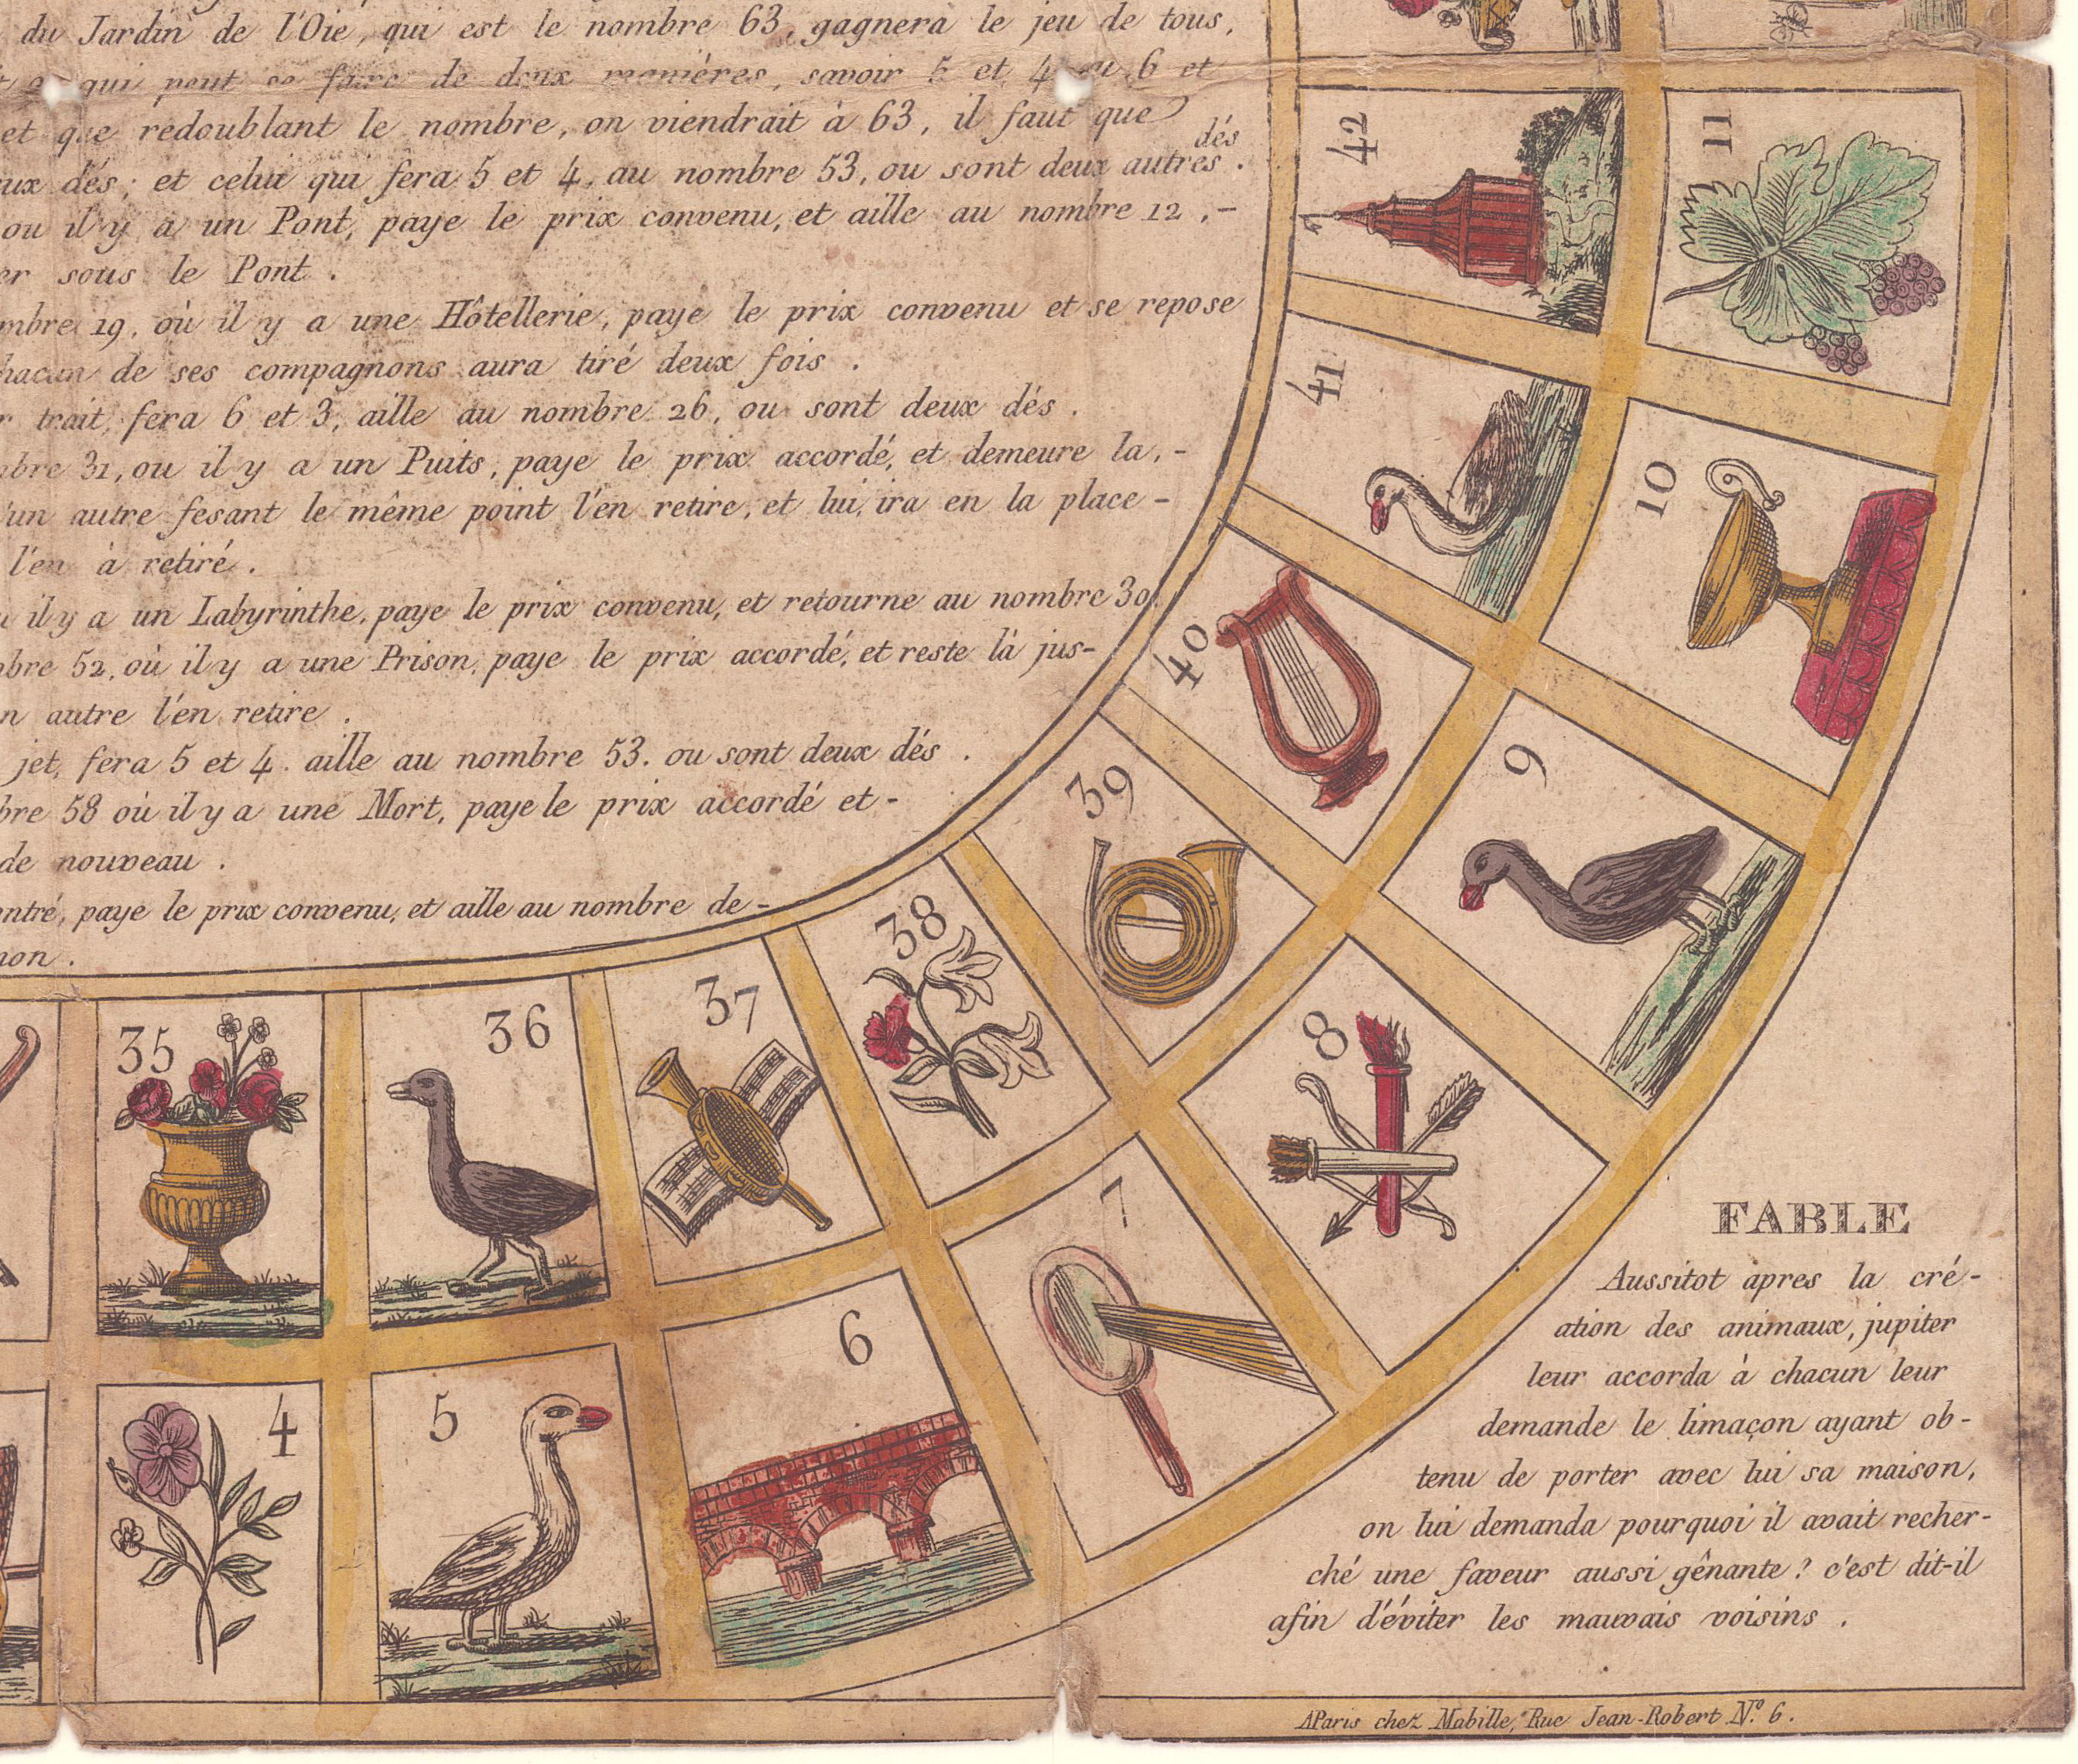 du Jardin de l'Oie, qui est le nombre 63, gagnera le jeu de tous,
qui peut se faire de deux manières, savoir 5 et 4 ou 6 et
et que redoublant le nombre, on viendrait à 63, il faut que
dés
ux dés; et celui qui fera 5 et 4, au nombre 53, ou sont deux autres.
ou il y a un Pont, paye le prix convenu, et aille au nombre 12,-
er sous le Pont.
mbre 19, où il y a une Hôtellerie, paye le prix convenu et se repose
hacun de ses compagnons aura tiré deux fois.
r trait, fera 6 et 3, aille au nombre 26, ou sont deux dés.
mbre 31, ou il y a un Puits, paye le prix accordé, et demeure la,-
'un autre fesant le même point l'en retire, et lui ira en la place-
l'en à retiré.
il y a un Labyrinthe, paye le prix convenu, et retourne au nombre 30.
mbre 52, où il y a une Prison, paye le prix accordé, et reste là jus-
n autre l'en retire.
jet, fera 5 et 4. aille au nombre 53. ou sont deux dés.
bre 58 où il y a une Mort, paye le prix accordé et-
de nouveau.
ntré, paye le prix convenu, et aille au nombre de-
non.
42
11
41
10
40
9
39
38
8
37
36
35
7
6
5
4
FABLE
Aussitot apres la cré-
ation des animaux, jupiter
leur accorda à chacun leur
demande le limaçon ayant ob-
tenu de porter avec lui sa maison,
on lui demanda pourquoi il avait recher-
ché une faveur aussi gênante? c'est dit-il
afin d'éviter les mauvais voisins.
A Paris chez Mabille, Rue Jean-Robert N.º 6.